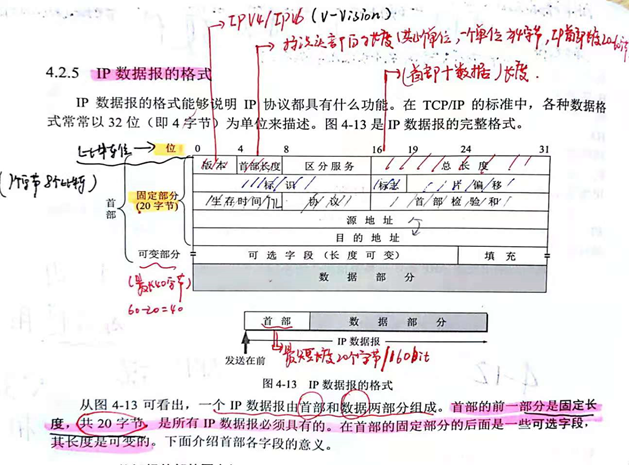 IPV4/IPV6 (V-Vision)
(首部+数据)长度.
4.2.5 IP 数据报的格式
IP 数据报的格式能够说明 IP 协议都具有什么功能。在 TCP/IP 的标准中，各种数据格
式常常以 32 位（即 4 字节）为单位来描述。图 4-13 是 IP 数据报的完整格式。
位 0 4 8 16 19 24 31
版本 首部长度 区分服务 总长度
(1个字节8个比特)
标识 标志 片偏移
首部
固定部分
(20 字节)
生存时间 协议 首部检验和
源地址
目的地址
可变部分 可选字段（长度可变） 填充
(最大40字节)
60-20=40
数据部分
首部 数据部分
IP 数据报
发送在前
最短长度20个字节/160bit
图 4-13 IP 数据报的格式
从图 4-13 可看出，一个 IP 数据报由首部和数据两部分组成。首部的前一部分是固定长
度，共 20 字节，是所有 IP 数据报必须具有的。在首部的固定部分的后面是一些可选字段，
其长度是可变的。下面介绍首部各字段的意义。